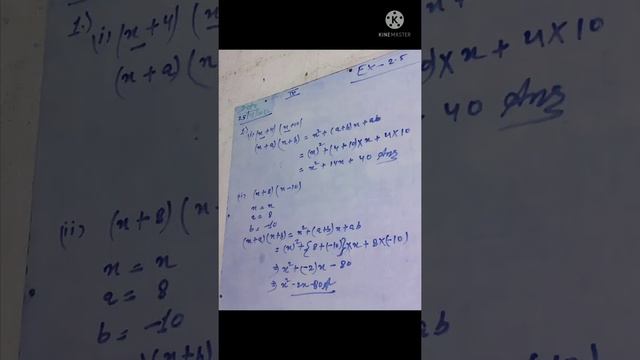 KINEMASTER
EX-2.5
1) (i) (x+4) (x+10)
(x+a) (x+b) = x² + (a+b)x + ab
= (x)² + (4+10)×x + 4×10
= x² + 14x + 40 Ans
(ii) (x+8) (x-10)
x = x
a = 8
b = -10
(x+a) (x+b) = x² + (a+b)x + ab
= (x)² + {8+(-10)}×x + 8×(-10)
⇒ x² + (-2)x - 80
⇒ x² - 2x - 80 A
1.) (i) (x+4) (x
(x+a) (x
)×x + 4×10
40 Ans
(ii) (x+8) (x
x = x
a = 8
b = -10